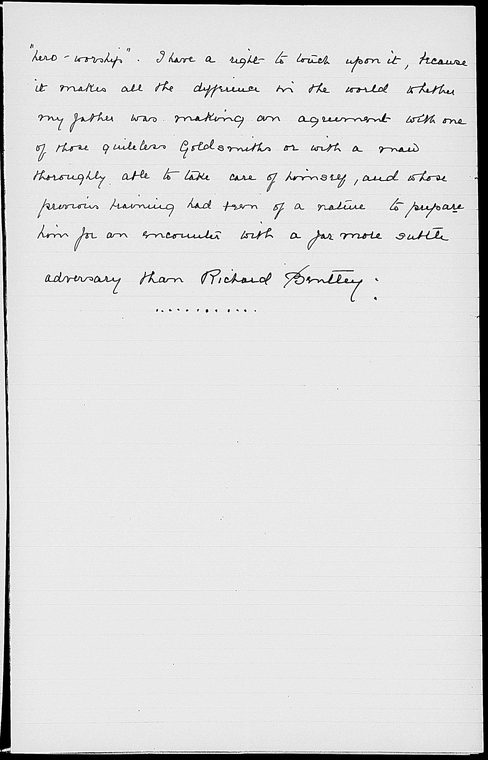 "hero-worship". I have a right to touch upon it, because
it makes all the difference in the world whether
my father was making an agreement with one
of those guileless Goldsmiths or with a man
thoroughly able to take care of himself, and whose
previous training had been of a nature to prepare
him for an encounter with a far more subtle
adversary than Richard Bentley:
..........